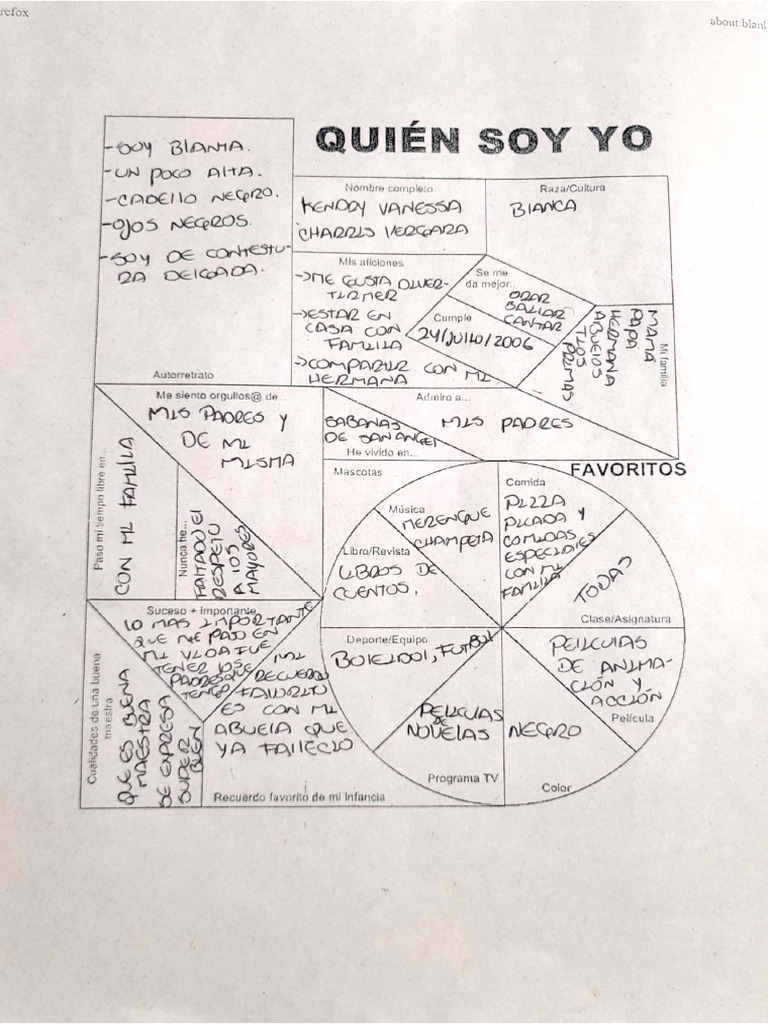 refox
about:blank
QUIÉN SOY YO
-SOY BLANCA.
-UN POCO ALTA.
-CABELLO NEGRO.
-OJOS NEGROS.
-SOY DE CONTESTU-
RA DELGADA.
Autorretrato
Nombre completo
KENDRY VANESSA
CHARRIS VERGARA
Raza/Cultura
BLANCA
Mis aficiones
→ME GUSTA DIVER-
TIRMER
→ESTAR EN
CASA CON
FAMILIA
→COMPARTIR CON MI
HERMANA
Se me
da mejor...
ORAR
BAILAR
CANTAR
Cumple
24/JULIO/2006
Mi familia
MAMÁ
PAPÁ
HERMANA
ABUELOS
TIOS
PRIMAS
Me siento orgullos@ de...
MIS PADRES Y
DE MI
MISMA
Admiro a...
MIS PADRES
SABANAS
DE SAN ANGEL
He vivido en...
Paso mi tiempo libre en...
CON MI FAMILIA
Nunca he...
FALTADO El
RESPETO
A lOS
MAYORES
Mascotas
FAVORITOS
Música
MERENGUE
CHAMPETA
Comida
PIZZA
PICADA Y
COMIDAS
ESPECIALES
CON MI
FAMILIA
Libro/Revista
LIBROS DE
CUENTOS.
TODAS
Clase/Asignatura
Deporte/Equipo
BOLEIBOL, FUTBOL
PELICULAS
DE ANIMA-
CIÓN Y
ACCIÓN
Película
PELICULAS
DE
NOVELAS
Programa TV
NEGRO
Color
Suceso + importante
LO MAS IMPORTANTE
QUE ME PASO EN
MI VIDA FUE
TENER LOS
PADRES QUE
TENGO
Cualidades de una buena
maestra
QUE ES BUENA
MAESTRA
SE EXPRESA
SUPER
BIEN
MI
RECUERDO
FAVORITO
ES CON MI
ABUELA QUE
YA FALLECIO
Recuerdo favorito de mi Infancia